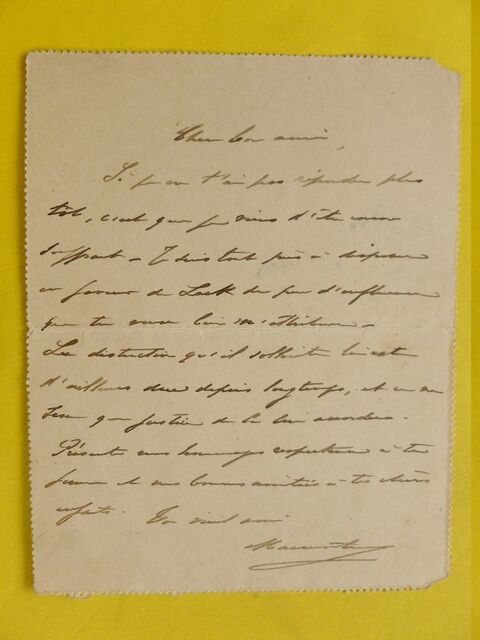 Cher bon ami,
Si je ne t'ai pas répondu plus
tôt, c'est que je viens d'être encore
souffrant - Je suis tout prêt à disposer
en faveur de Leek du peu d'influence
que tu veux bien m'attribuer -
La distinction qu'il sollicite lui est
d'ailleurs due depuis longtemps, et ce ne
sera que justice de la lui accorder.
Présente mes hommages respectueux à ta
femme et mes bonnes amitiés à tes chers
enfants. Ton vieil ami